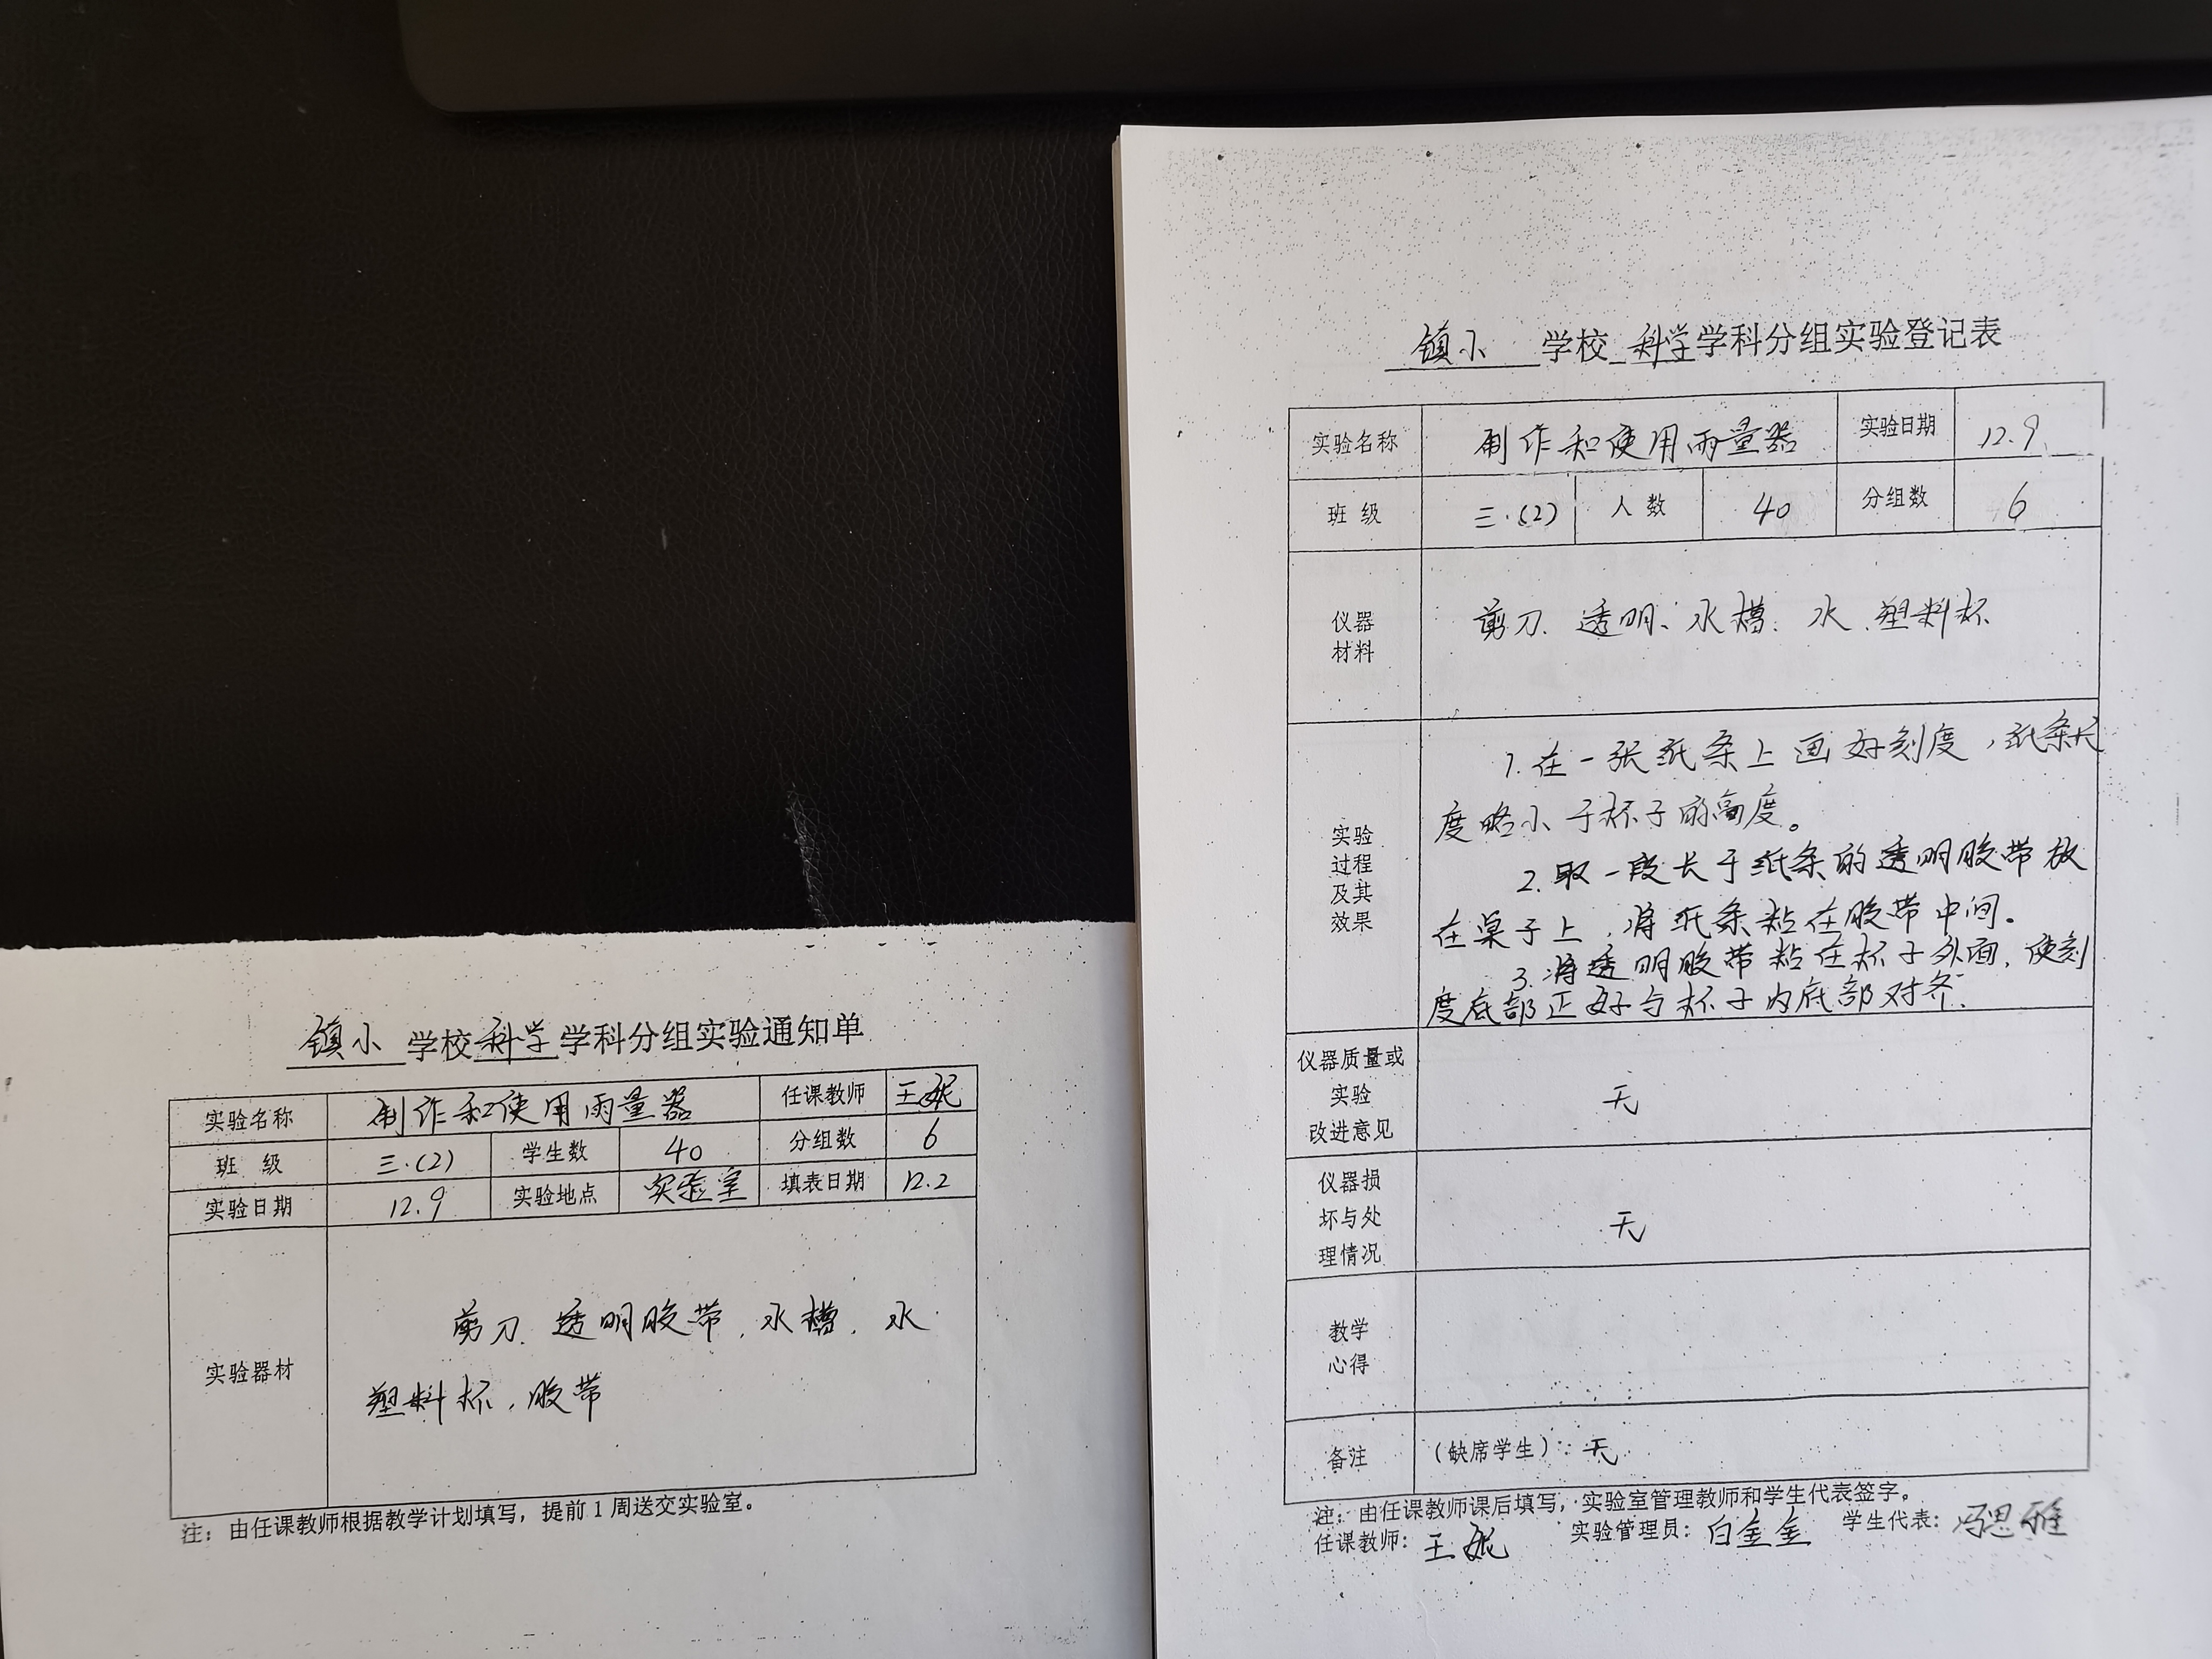 镇小 学校 科学 学科分组实验通知单
实验名称 制作和使用雨量器 任课教师 王妮
班 级 三.(2) 学生数 40 分组数 6
实验日期 12.9 实验地点 实验室 填表日期 12.2
实验器材
剪刀、透明胶带、水槽、水
塑料杯、胶带
注：由任课教师根据教学计划填写，提前1周送交实验室。
镇小 学校 科学 学科分组实验登记表
实验名称 制作和使用雨量器 实验日期 12.9
班 级 三.(2) 人 数 40 分组数 6
仪器
材料
剪刀、透明、水槽、水、塑料杯
实验
过程
及其
效果
1.在一张纸条上画好刻度，纸条长
度略小于杯子的高度。
2.取一段长于纸条的透明胶带放
在桌子上，将纸条粘在胶带中间。
3.将透明胶带粘在杯子外面，使刻
度底部正好与杯子内底部对齐.
仪器质量或
实验
改进意见
无
仪器损
坏与处
理情况
无
教学
心得
备注 （缺席学生）：无
注：由任课教师课后填写，实验室管理教师和学生代表签字。
任课教师：王妮 实验管理员：白金金 学生代表：冯思雅